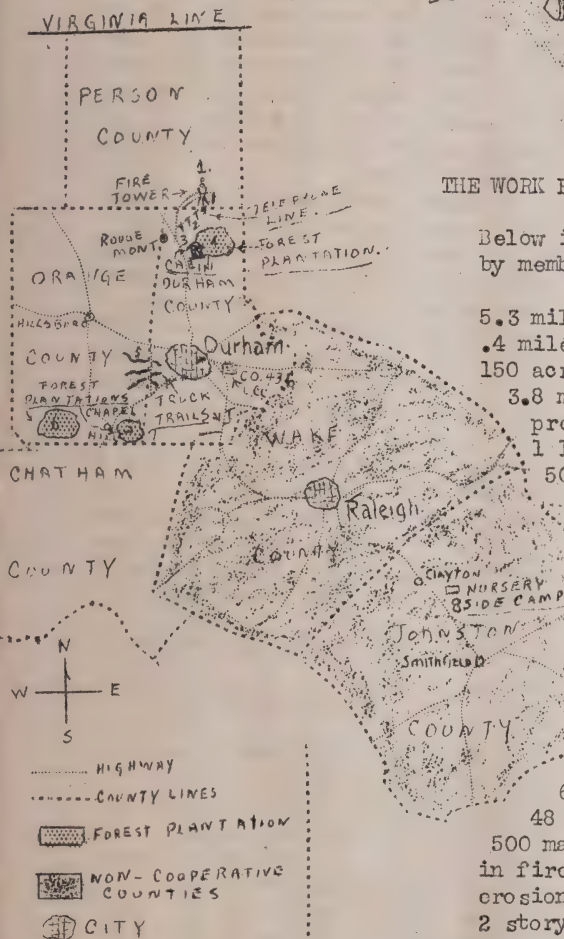 VIRGINIA LINE
PERSON
COUNTY
1.
FIRE
TOWER
TELEPHONE
LINE.
ROUGE
MONT
FOREST
PLANTATION.
CABIN
ORANGE
DURHAM
COUNTY
HILLSBORO
COUNTY
Durham
CO. 436
FOREST
PLANTATIONS
CHAPEL
HILL
TRUCK
TRAILS
WAKE
CHATHAM
Raleigh
COUNTY
COUNTY
CLAYTON
NURSERY
SIDE CAMP
JOHNSTON
Smithfield
COUNTY
N
W E
S
HIGHWAY
COUNTY LINES
FOREST PLANTATION
NON-COOPERATIVE
COUNTIES
CITY
THE WORK
Below
by
5.3
.4
150
3.8
1
48
500
in
erosion
2 story